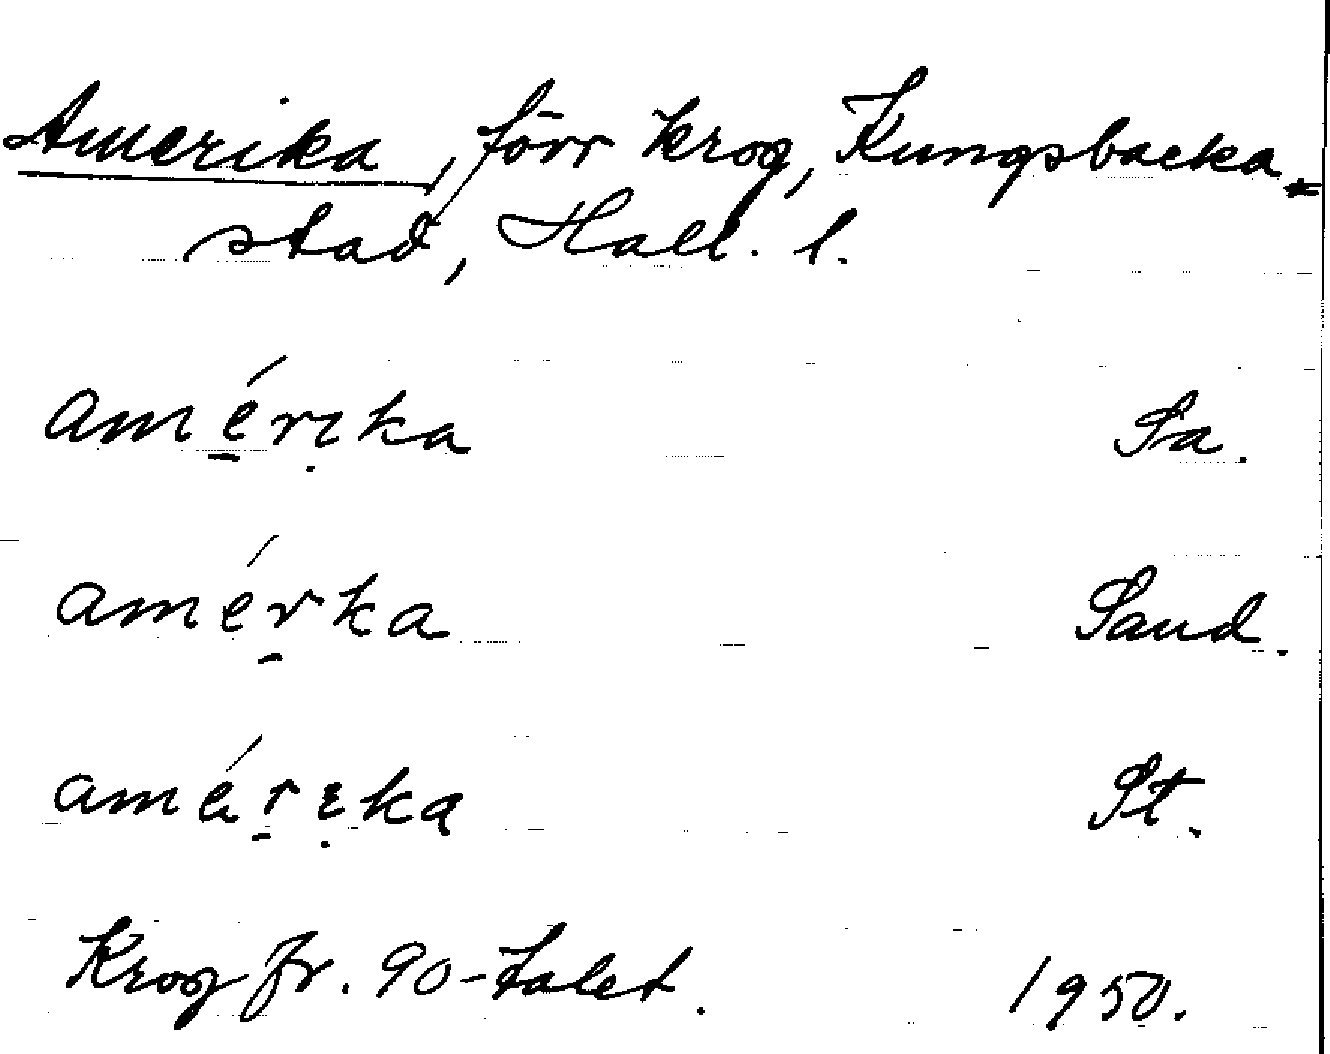 Amerika, förr krog, Kungsbacka
stad, Hall. l.
amérika Sa.
amérka Sand.
amérika St.
Krog fr. 90-talet. 1950.